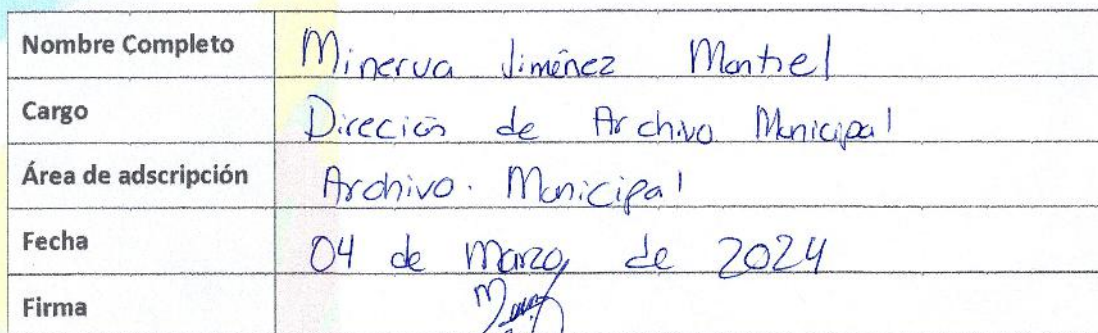 Nombre Completo Minerva Jiménez Montiel
Cargo Direción de Archivo Municipal
Área de adscripción Archivo. Municipal
Fecha 04 de Marzo, de 2024
Firma